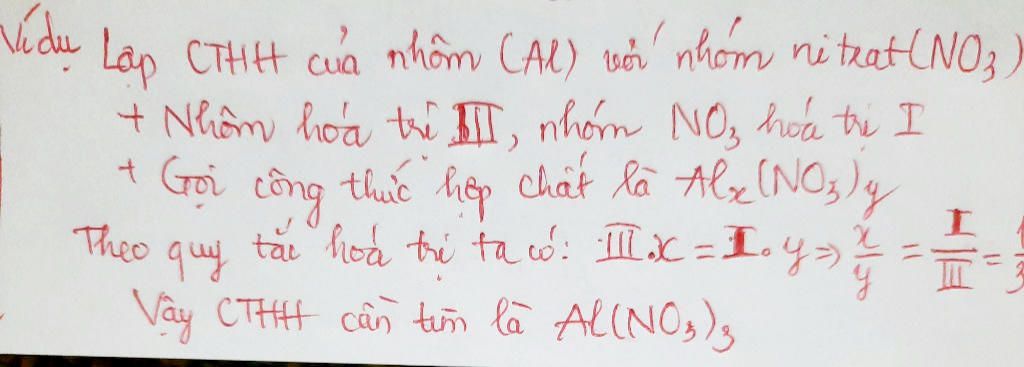 Ví dụ Lập CTHH của nhôm (Al) với nhóm nitrat (NO₃)
+ Nhôm hoá trị III, nhóm NO₃ hoá trị I
+ Gọi công thức hợp chất là Alₓ(NO₃)y
Theo quy tắc hoá trị ta có: III.x = I.y => x/y = I/III = 1/3
Vậy CTHH cần tìm là Al(NO₃)₃